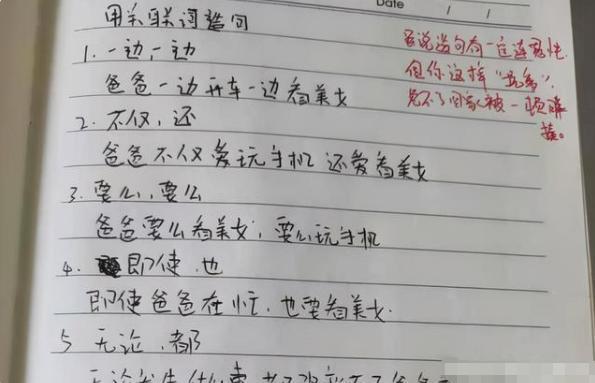 Date / /
用关联词造句
1. 一边,一边
爸爸一边开车一边看美女
2. 不仅,还
爸爸不仅爱玩手机还爱看美女
3. 要么,要么
爸爸要么看美女,要么玩手机
4. 即使.也
即使爸爸在忙,也要看美女.
5 无论.都
虽说造句有一定连贯性.
但你这样"坑爹",
免不了回家被一顿胖
揍。